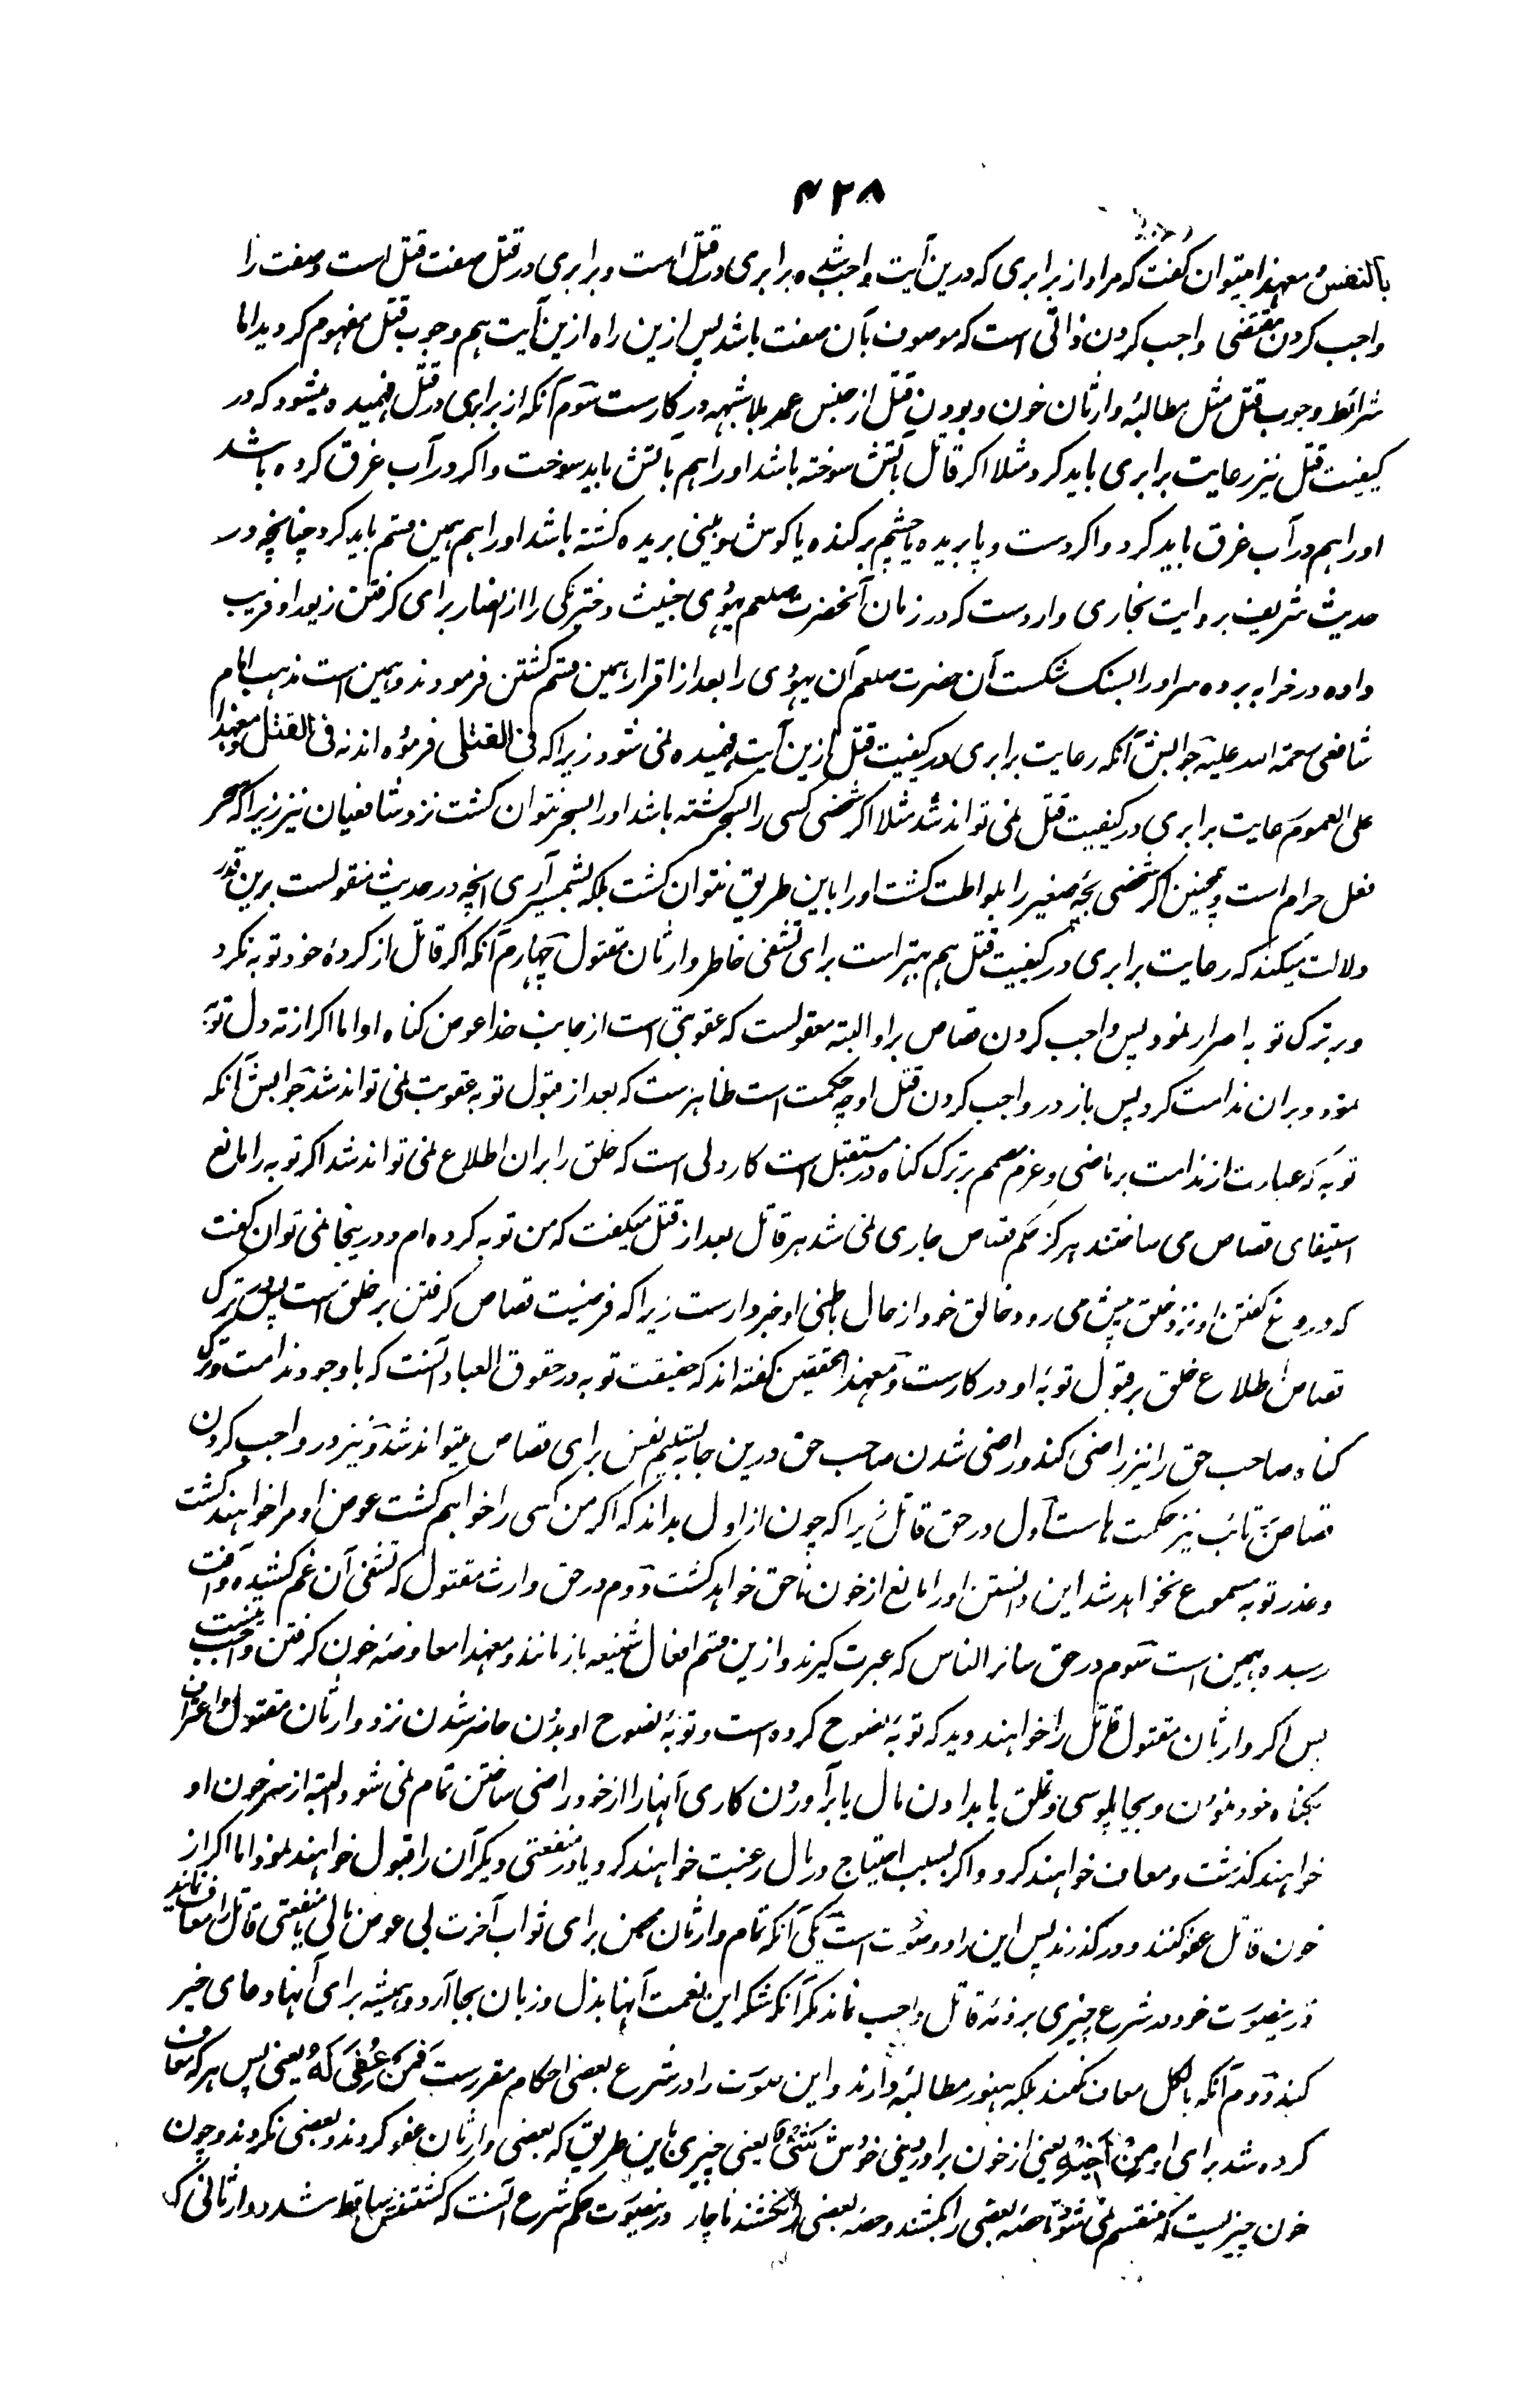 ۴۲۸
بالنفس و معهذا میتوان گفت که مراد از برابری که درین آیت واجب شده برابری در قتل است و برابری در قتل صفت قتل است و صفت را
واجب کردن مقتضی واجب کردن ذاتی است که موصوف بآن صفت باشد پس ازین راه ازین آیت هم وجوب قتل مفهوم گردید اما
شرائط وجوب قتل مثل مطالبهٔ وارثان خون و بودن قتل از جنس عمد بلا شبهه در کارست سوم آنکه از برابری در قتل فهمیده میشود که در
کیفیت قتل نیز رعایت برابری باید کرد مثلا اگر قاتل بآتش سوخته باشد او را هم بآتش باید سوخت و اگر در آب غرق کرده باشد
او را هم در آب غرق باید کرد و اگر دست و پا بریده یا چشم برکنده یا گوش و بینی بریده کشته باشد او را هم همین قسم باید کرد چنانچه در
حدیث شریف بروایت بخاری واردست که در زمان آنحضرت صلعم یهودی خبیث دخترکی را از انصار برای گرفتن زیور او فریب
داده در خرابه برده سر او را بسنگ شکست آن حضرت صلعم آن یهودی را بعد از اقرار همین قسم کشتن فرمودند و همین است مذهب امام
شافعی رحمة الله علیه جوابش آنکه رعایت برابری در کیفیت قتل ازین آیت فهمیده نمی شود زیرا که فی القتلی فرموده اند نه فی القتل و معهذا
علی العموم رعایت برابری در کیفیت قتل نمی تواند شد مثلا اگر شخصی کسی را بسحر کشته باشد او را بسحر نتوان کشت نزد شافعیان نیز زیرا که سحر
فعل حرام است و همچنین اگر شخصی بچه صغیر را بلواطت کشت او را باین طریق نتوان کشت بلکه بشمشیر آری آنچه در حدیث منقولست برین قدر
دلالت میکند که رعایت برابری در کیفیت قتل هم بهتر است برای تشفی خاطر وارثان مقتول چهارم آنکه اگر قاتل از کردهٔ خود توبه نکرد
و بر ترک توبه اصرار نمود پس واجب کردن قصاص برو البته معقولست که عقوبتی است از جانب خدا عوض گناه او اما اگر از ته دل توبه
نمود و بران ندامت کرد پس باز در واجب کردن قتل او چه حکمت است ظاهرست که بعد از قبول توبه عقوبت نمی تواند شد جوابش آنکه
توبه که عبارت از ندامت بر ماضی و عزم مصمم بر ترک گناه در مستقبل است کار دلی است که خلق را بران اطلاع نمی تواند شد اگر توبه را مانع
استیفای قصاص می ساختند هرگز حکم قصاص جاری نمی شد هر قاتل بعد از قتل میگفت که من توبه کرده ام و درینجا نمی توان گفت
که دروغ گفتن او نزد خلق پیش می رود خالق خود از حال باطنی او خبردارست زیرا که فرضیت قصاص گرفتن بر خلق است پس در ترک
قصاص اطلاع خلق بر قبول توبهٔ او در کارست و معهذا محققین گفته اند که حقیقت توبه در حقوق العباد آنست که با وجود ندامت و ترک
گناه صاحب حق را نیز راضی کند و راضی شدن صاحب حق درین جا به تسلیم نفس برای قصاص میتواند شد و نیز در واجب کردن
قصاص تائب نیز حکمت هاست اول در حق قاتل زیرا که چون از اول بداند که اگر من کسی را خواهم کشت عوض او مرا خواهند کشت
و عذر توبه مسموع نخواهد شد این دانستن او را مانع از خون ناحق خواهد گشت دوم در حق وارث مقتول که تشفی آن غم کشیده و آفت
رسیده همین است سوم در حق سائر الناس که عبرت گیرند و ازین قسم افعال شنیعه باز مانند و معهذا معاوضه خون گرفتن واجب نیست
پس اگر وارثان مقتول قاتل را خواهند دید که توبهٔ نصوح کرده است و توبهٔ نصوح او بدون حاضر شدن نزد وارثان مقتول و اعتراف
بگناه خود نمودن و بچاپلوسی و تملق یا بدادن مال یا برآوردن کاری آنها را از خود راضی ساختن تمام نمی شود البته از سر خون او
خواهند گذشت و معاف خواهند کرد و اگر بسبب احتیاج در مال رغبت خواهند کرد یا در منفعتی دیگر آن را قبول خواهند نمود اما اگر از
خون قاتل عفو کنند و درگذرند پس این را دو صورت است یکی آنکه تمام وارثان محض برای ثواب آخرت بی عوض مالی یا منفعتی قاتل را معاف نمایند
درینصورت خود در شرع چیزی بر ذمهٔ قاتل واجب نماند مگر آنکه شکر این نعمت آنها بدل و زبان بجا آرد و همیشه برای آنها دعای خیر
کند دوم آنکه بالکل معاف نکنند بلکه هنوز مطالبه دارند و این صورت را در شرع بعضی احکام مقررست فَمَنْ عُفِیَ لَهُ یعنی پس هر که معاف
کرده شد برای او مِنْ اَخِیْهِ یعنی از خون برادر دینی خودش شَیْءٌ یعنی چیزی باین طریق که بعضی وارثان عفو کردند و بعضی نکردند و چون
خون چیزیست که منقسم نمی شود تا حصه بعضی را بکشند و حصه بعضی را بخشند ناچار درینصورت حکم شرع آنست که کشتنش ساقط شد و وارثانی که